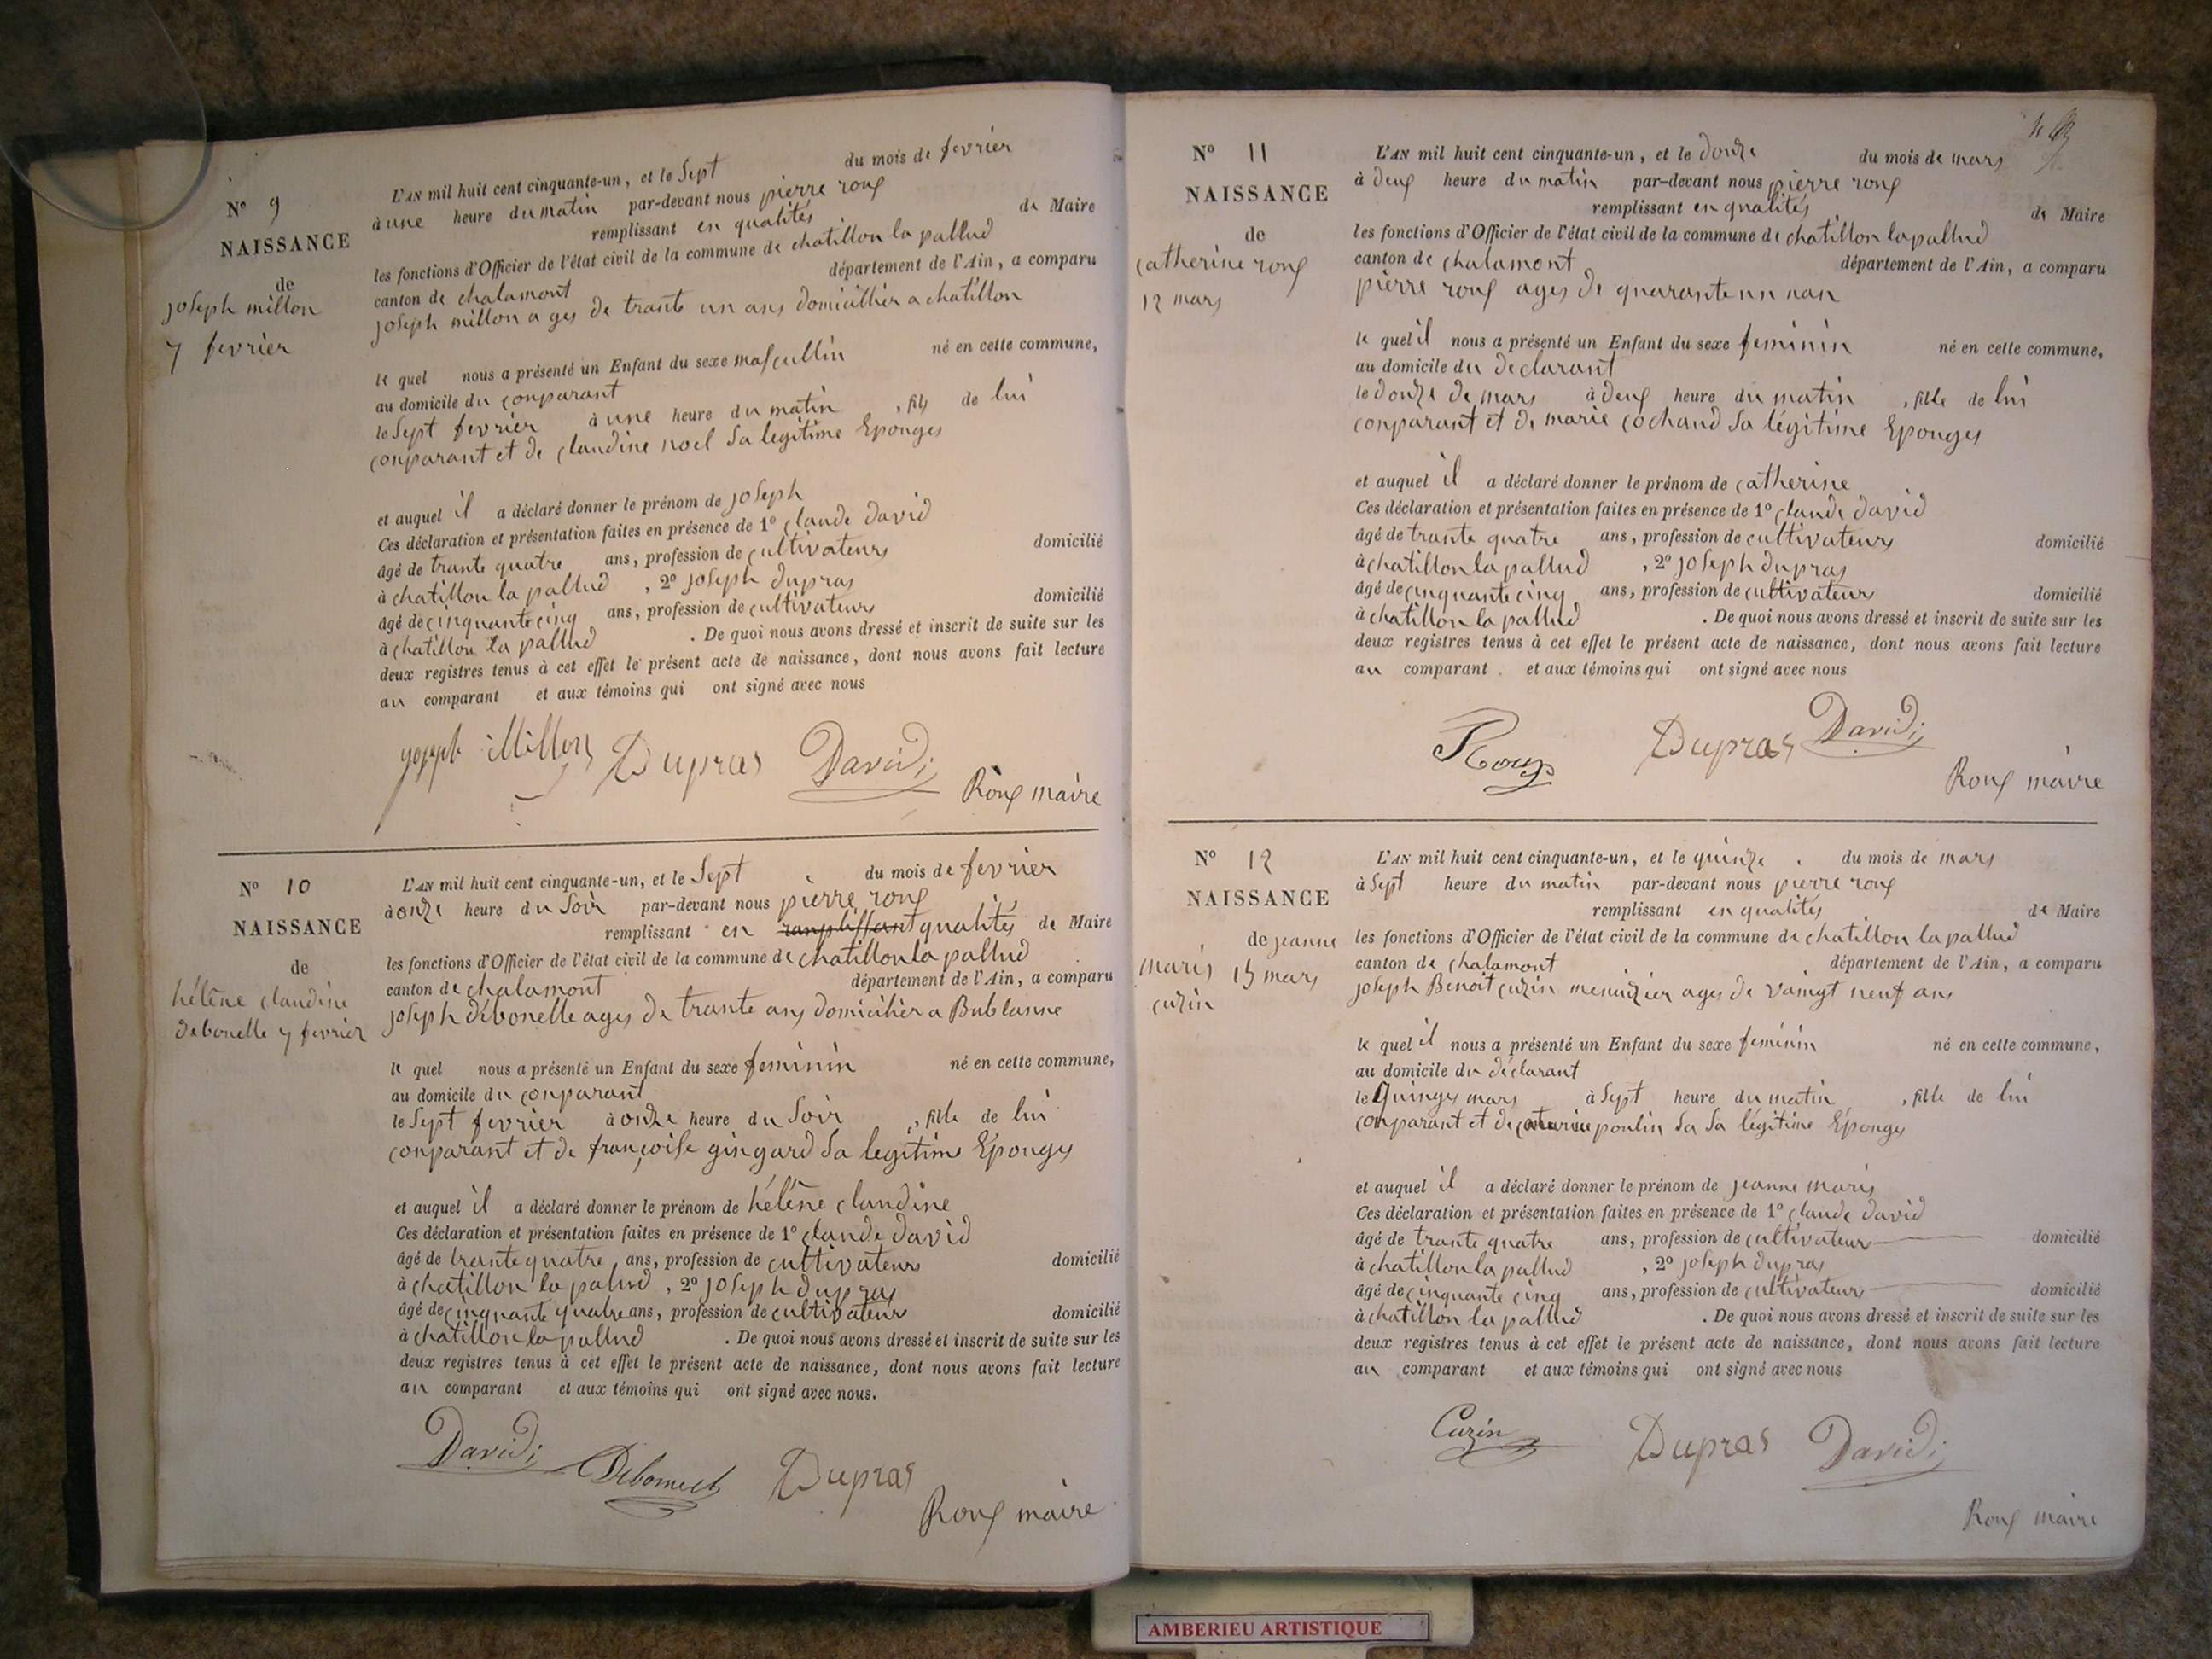 N° 9
NAISSANCE
de
joseph millon
7 fevrier
L'AN mil huit cent cinquante-un, et le Sept du mois de fevrier
à une heure du matin par-devant nous pierre roux
remplissant en qualités de Maire
les fonctions d'Officier de l'état civil de la commune de chatillon la pallud
canton de chalamont département de l'Ain, a comparu
joseph millon ages de trante un ans domicillier a chatillon
le quel nous a présenté un Enfant du sexe mascullin né en cette commune,
au domicile du conparant
le Sept fevrier à une heure du matin, fils de lui
conparant et de claudine noel Sa legitime Epouges
et auquel il a déclaré donner le prénom de joseph
Ces déclaration et présentation faites en présence de 1° claude david
âgé de trante quatre ans, profession de cultivateurs domicilié
à chatillon la pallud, 2° joseph dupras
âgé de cinquante cinq ans, profession de cultivateurs domicilié
à chatillon la pallud. De quoi nous avons dressé et inscrit de suite sur les
deux registres tenus à cet effet le présent acte de naissance, dont nous avons fait lecture
au comparant et aux témoins qui ont signé avec nous
Millon Dupras David
Roux maire
N° 10
NAISSANCE
de
hélène claudine
debonelle 7 fevrier
L'AN mil huit cent cinquante-un, et le Sept du mois de fevrier
à onze heure du Soir par-devant nous pierre roux
remplissant en ranplissant qualités de Maire
les fonctions d'Officier de l'état civil de la commune de chatillon la pallud
canton de chalamont département de l'Ain, a comparu
joseph débonelle ages de trante ans domicilièr a Bublanne
le quel nous a présenté un Enfant du sexe feminin né en cette commune,
au domicile du conparant
le Sept fevrier à onze heure du Soir, fille de lui
conparant et de françoise gingard Sa legitime Epouges
et auquel il a déclaré donner le prénom de hélène claudine
Ces déclaration et présentation faites en présence de 1° claude david
âgé de trante quatre ans, profession de cultivateurs domicilié
à chatillon la palud, 2° joseph dupras
âgé de cinquante quatre ans, profession de cultivateur domicilié
à chatillon la pallud. De quoi nous avons dressé et inscrit de suite sur les
deux registres tenus à cet effet le présent acte de naissance, dont nous avons fait lecture
au comparant et aux témoins qui ont signé avec nous.
David Dupras
Roux maire
N° 11
NAISSANCE
de
catherine roux
12 mars
L'AN mil huit cent cinquante-un, et le douze du mois de mars
à deux heure du matin par-devant nous pierre roux
remplissant en qualités de Maire
les fonctions d'Officier de l'état civil de la commune de chatillon la pallud
canton de chalamont département de l'Ain, a comparu
pierre roux ages de quarante un nan
le quel il nous a présenté un Enfant du sexe feminin né en cette commune,
au domicile du declarant
le douze de mars à deux heure du matin, fille de lui
conparant et de marie cochand Sa légitime Epouges
et auquel il a déclaré donner le prénom de catherine
Ces déclaration et présentation faites en présence de 1° claude david
âgé de trante quatre ans, profession de cultivateurs domicilié
à chatillon la pallud, 2° joseph dupras
âgé de cinquante cinq ans, profession de cultivateur domicilié
à chatillon la pallud. De quoi nous avons dressé et inscrit de suite sur les
deux registres tenus à cet effet le présent acte de naissance, dont nous avons fait lecture
au comparant. et aux témoins qui ont signé avec nous
Roux Dupras David
Roux maire
N° 12
NAISSANCE
de jeanne
maris 15 mars
cuzin
L'AN mil huit cent cinquante-un, et le quinze du mois de mars
à Sept heure du matin par-devant nous pierre roux
remplissant en qualités de Maire
les fonctions d'Officier de l'état civil de la commune de chatillon la pallud
canton de chalamont département de l'Ain, a comparu
joseph Benoit cuzin menuizier ages de vaingt neuf ans
le quel il nous a présenté un Enfant du sexe feminin né en cette commune,
au domicile du déclarant
le Quinges mars à Sept heure du matin, fille de lui
conparant et de poulin Sa Sa légitime Épouges
et auquel il a déclaré donner le prénom de jeanne maris
Ces déclaration et présentation faites en présence de 1° claude david
âgé de trante quatre ans, profession de cultivateur domicilié
à chatillon la pallud, 2° joseph dupras
âgé de cinquante cinq ans, profession de cultivateur domicilié
à chatillon la pallud. De quoi nous avons dressé et inscrit de suite sur les
deux registres tenus à cet effet le présent acte de naissance, dont nous avons fait lecture
au comparant et aux témoins qui ont signé avec nous
Cuzin Dupras David
Roux maire
AMBERIEU ARTISTIQUE